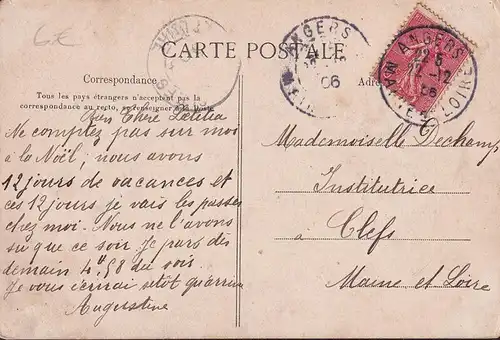 6€
CARTE POSTALE
Correspondance
Tous les pays étrangers n'acceptent pas la
correspondance au recto, se renseigner à la Poste
Bien Chère Lætitia
Ne comptez pas sur moi
à la Noël; nous avons
12 jours de vacances et
ces 12 jours je vais les passer
chez moi. Nous ne l'avons
su que ce soir. Je pars dès
demain 4h,58 du soir
Je vous écrirai sitôt
Augustine
ANGERS
06
ANGERS
5
-12
06
MAINE ET LOIRE
Mademoiselle Dechamp
Institutrice
à Clefs
Maine et Loire